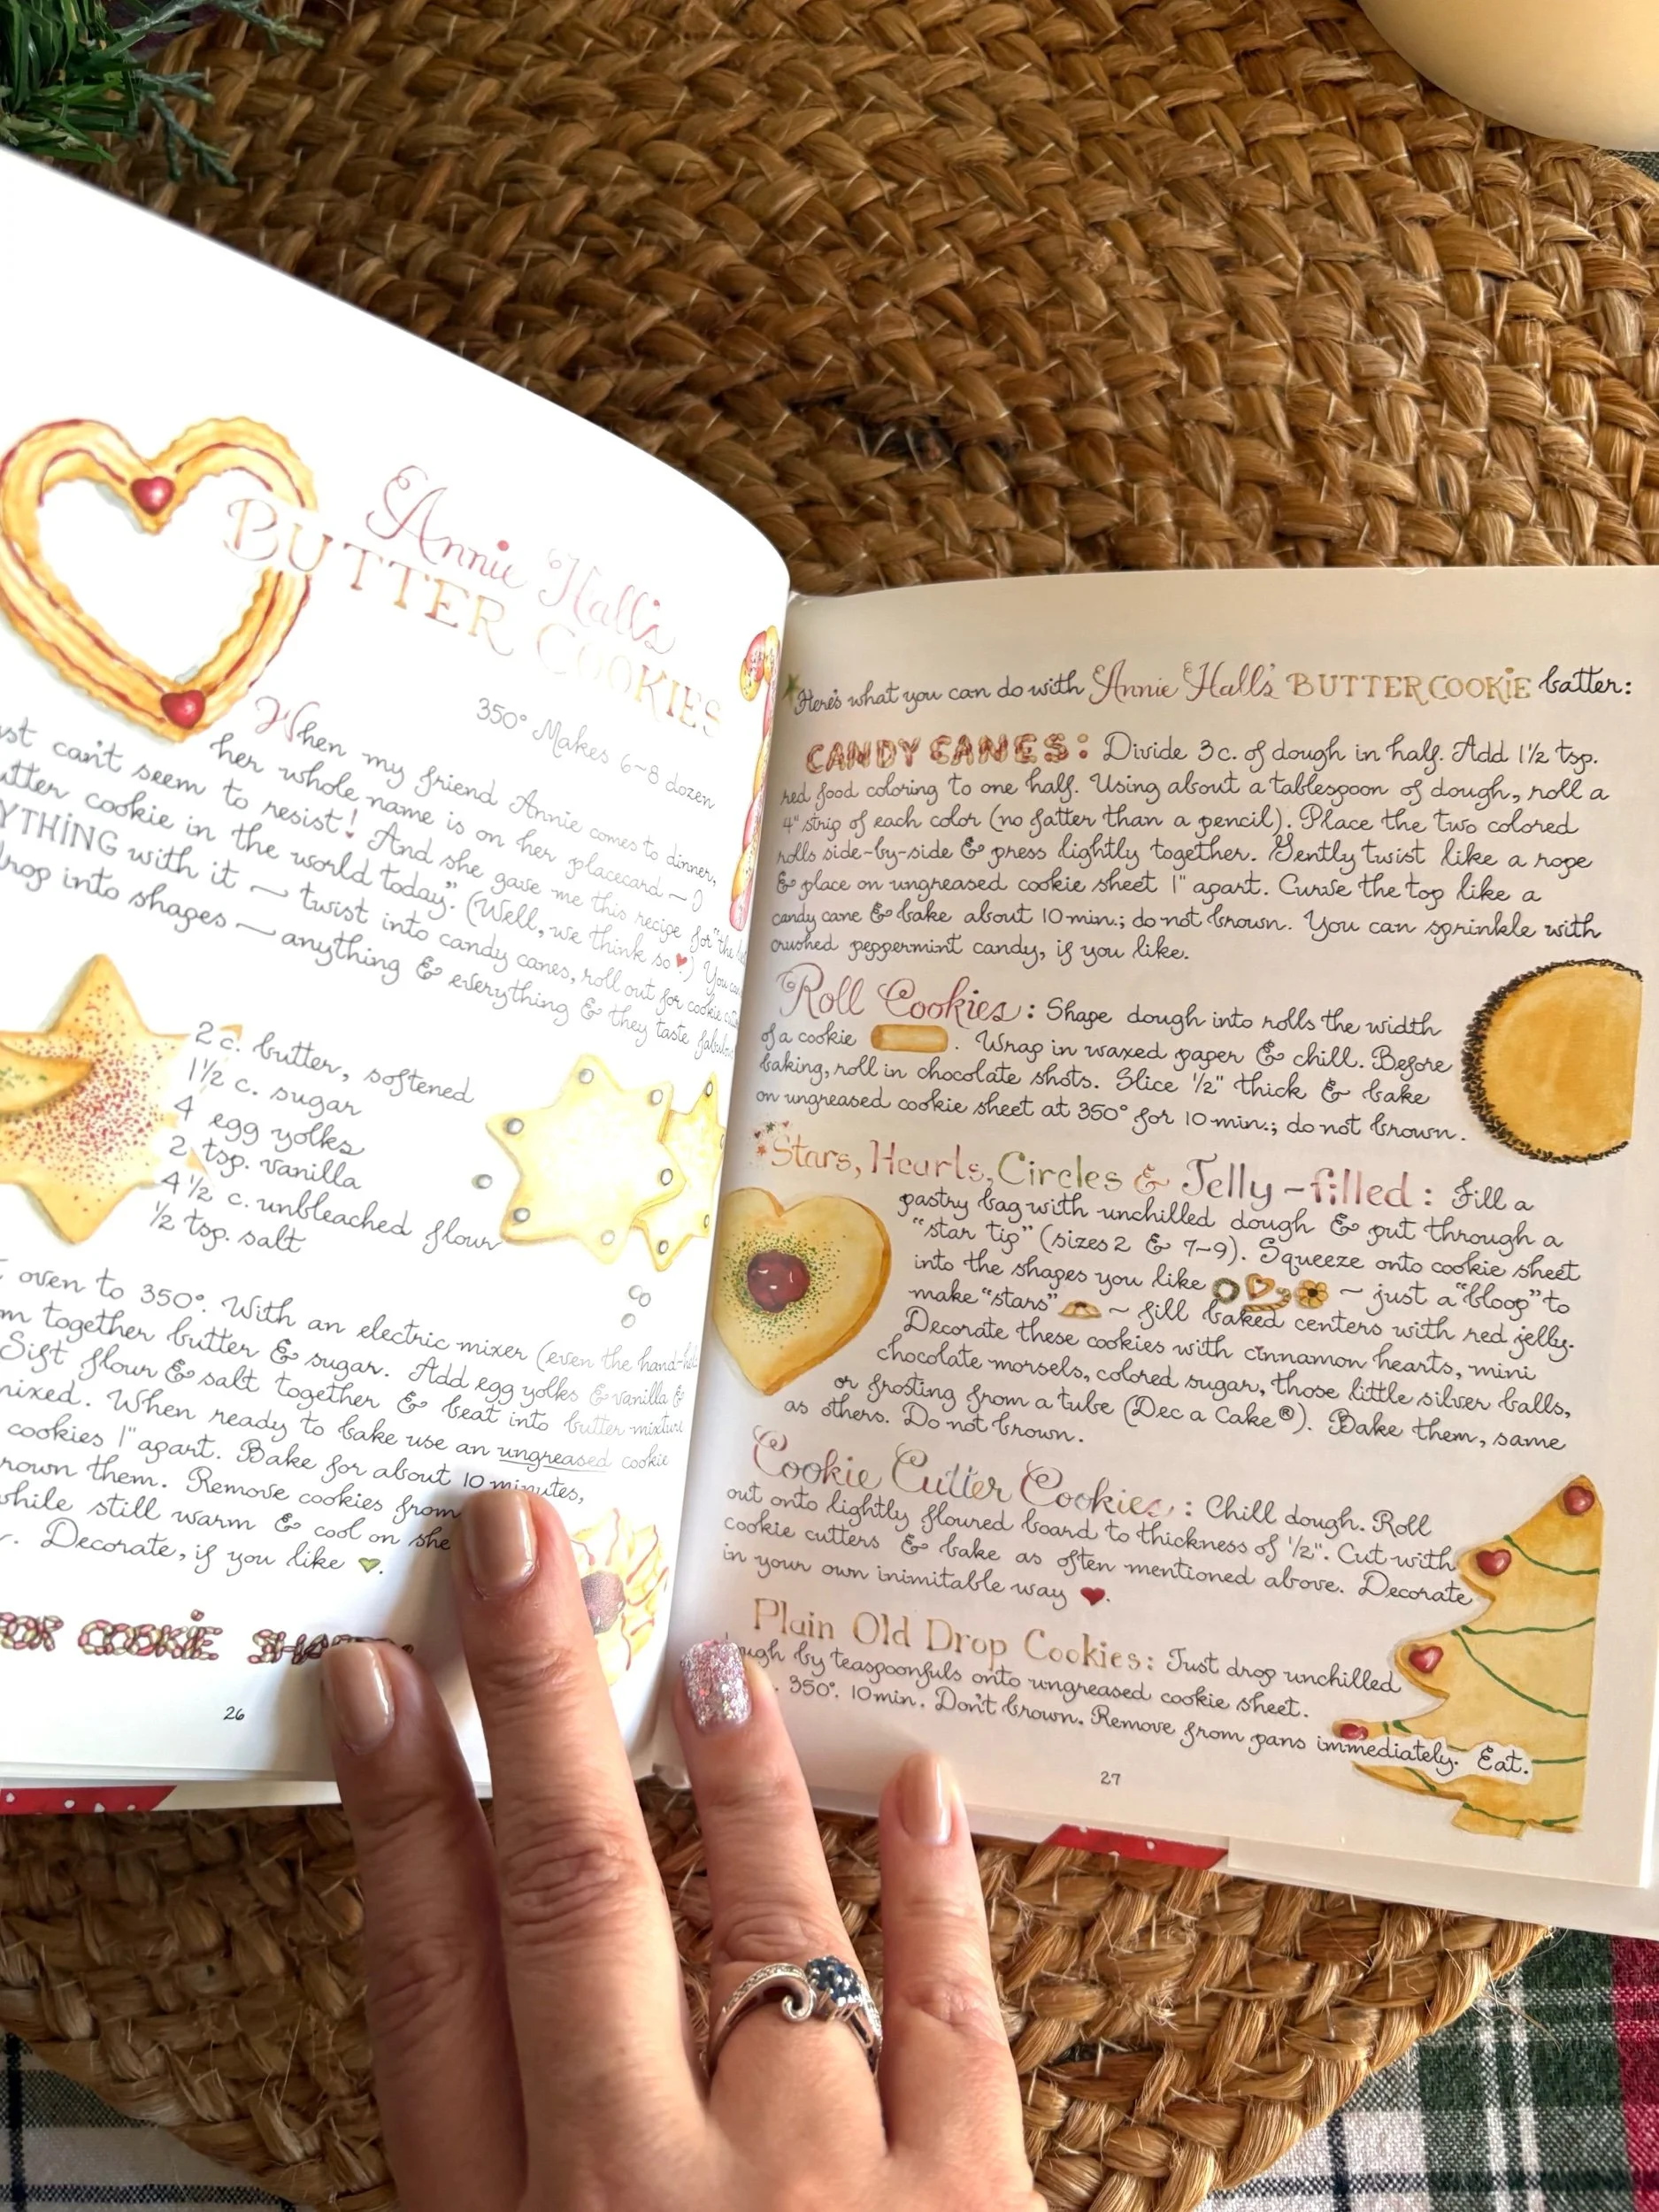 Annie Hall's
BUTTER COOKIES
350° Makes 6~8 dozen
When my friend Annie comes to dinner,
her whole name is on her placecard ~ I
can't seem to resist! And she gave me this recipe for "the
cookie in the world today." (Well, we think so♥.) You can
with it ~ twist into candy canes, roll out for cookie
into shapes ~ anything & everything & they taste
2 c. butter, softened
1½ c. sugar
4 egg yolks
2 tsp. vanilla
4½ c. unbleached flour
½ tsp. salt
oven to 350°. With an electric mixer (even the
together butter & sugar. Add egg yolks & vanilla &
Sift flour & salt together & beat into butter mixture
When ready to bake use an ungreased cookie
cookies 1" apart. Bake for about 10 minutes,
them. Remove cookies from
while still warm & cool on
Decorate, if you like ♥.
COOKIE
26
Here's what you can do with Annie Hall's BUTTER COOKIE batter:
CANDY CANES: Divide 3 c. of dough in half. Add 1½ tsp.
red food coloring to one half. Using about a tablespoon of dough, roll a
4" strip of each color (no fatter than a pencil). Place the two colored
rolls side-by-side & press lightly together. Gently twist like a rope
& place on ungreased cookie sheet 1" apart. Curve the top like a
candy cane & bake about 10 min.; do not brown. You can sprinkle with
crushed peppermint candy, if you like.
Roll Cookies: Shape dough into rolls the width
of a cookie . Wrap in waxed paper & chill. Before
baking, roll in chocolate shots. Slice ½" thick & bake
on ungreased cookie sheet at 350° for 10 min.; do not brown.
Stars, Hearts, Circles & Jelly-filled: Fill a
pastry bag with unchilled dough & put through a
"star tip" (sizes 2 & 7-9). Squeeze onto cookie sheet
into the shapes you like ~ just a "bloop" to
make "stars" ~ fill baked centers with red jelly.
Decorate these cookies with cinnamon hearts, mini
chocolate morsels, colored sugar, those little silver balls,
or frosting from a tube (Dec a Cake®). Bake them, same
as others. Do not brown.
Cookie Cutter Cookies: Chill dough. Roll
out onto lightly floured board to thickness of ½". Cut with
cookie cutters & bake as often mentioned above. Decorate
in your own inimitable way ♥.
Plain Old Drop Cookies: Just drop unchilled
by teaspoonfuls onto ungreased cookie sheet.
350°. 10 min. Don't brown. Remove from pans immediately. Eat.
27